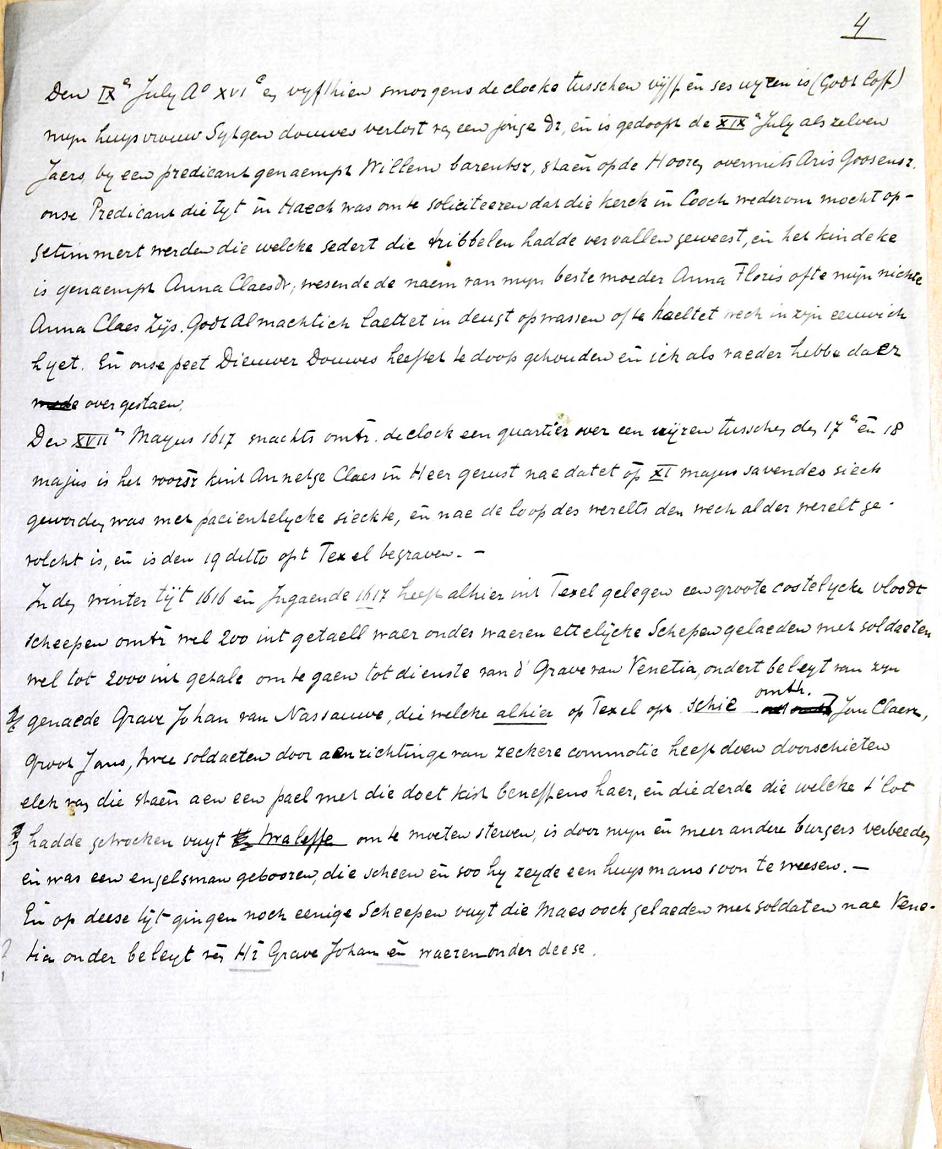 4
Den IXe July Ao XVIe en vyfthien smorgens de clocke tusschen vijff en ses uyren is (Godt loff)
mijn huysvrouw Sytgen douwes verlost van een jonge dr, en is gedoopt de XIXe July als zelven
Jaers, by een predicant genaempt Willem barentsz, staen op de Hooren overmits Aris Goosensz.
onse Predicant die tyt in Haech was om te soliciteeren dat die kerck in Cooch wederom mocht op-
getimmert werden die welcke sedert die tribbelen hadde vervallen geweest, en het kindeke
is genaempt Anna Claesdr, wesende de naem van mijn beste moeder Anna Floris ofte mijn nichte
Anna Claes Zijs. Godt Almachtich laettet in deugt opwassen ofte haeltet wech in zijn eeuwich
hyet. En onse peet Dieuwer Douwes heeftet te doop gehouden en ick als vaeder hebbe daer
mede over gestaen.
Den XVIIen Mayus 1617 snachts omtr. de clock een quartier over een uijren tusschen den 17e en 18
majus is het voorsz kint Annetge Claes in Heer gerust nae datet op XI majus savendes sieck
geworden was met pacientelycke sieckte, en nae de loop des werelts den wech alder werelt ge-
volcht is, en is den 19 ditto opt Texel begraven. –
In den winter tijt 1616 en Ingaende 1617 heeft alhier int Texel gelegen een groote costelycke vloodt
scheepen omtr wel 200 int getaell waer onder waeren ettelijcke Schepen gelaeden met soldaeten
wel tot 2000 int getale om te gaen tot dienste van d' Grave van Venetia, ondert beleyt van zyn
genaede Grave Johan van Nassauwe, die welcke alhier op Texel opt schil omtr. Jan Claesz,
groot Jans, twee soldaeten door aenrichtinge van zeckere commotie heeft doen doorschieten
elck van die staen aen een pael met die doet kist beneffens haer, en die derde die welcke t'lot
hadde getrocken vuyt twaleffe om te moeten sterven, is door mijn en meer andere burgers verbeeden
en was een engelsman gebooren, die scheen en soo hy zeyde een huysmans soon te weesen. –
En op deese tijt gingen noch eenige Scheepen vuyt die Maes oock gelaeden met soldaten nae Vene-
tia onder beleyt van Hr Grave Johan en waeren onder deese.